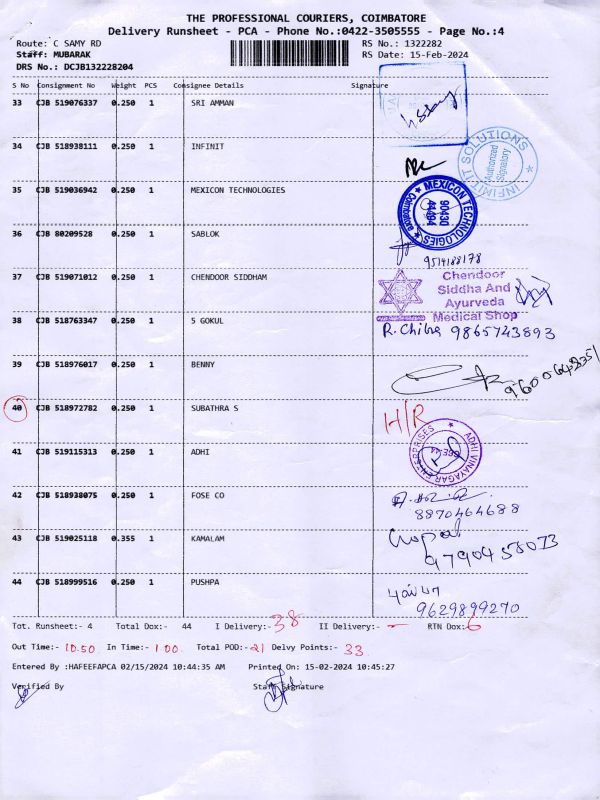 THE PROFESSIONAL COURIERS, COIMBATORE
Delivery Runsheet - PCA - Phone No.:0422-3505555 - Page No.:4
Route: C SAMY RD
RS No.: 1322282
Staff: MUBARAK
RS Date: 15-Feb-2024
DRS No.: DCJB132228204
S No Consignment No Weight PCS Consignee Details Signature
33 CJB 519076337 0.250 1 SRI AMMAN
34 CJB 518938111 0.250 1 INFINIT
INFINIT IT SOLUTIONS
Authorized Signatory
35 CJB 519036942 0.250 1 MEXICON TECHNOLOGIES
MEXICON TECHNOLOGIES
90430
44494
Coimbatore
36 CJB 80209528 0.250 1 SABLOK
9514188178
37 CJB 519071012 0.250 1 CHENDOOR SIDDHAM
Chendoor
Siddha And
Ayurveda
Medical Shop
38 CJB 518763347 0.250 1 S GOKUL
R. Chitra 9865743893
39 CJB 518976017 0.250 1 BENNY
9600648351
40 CJB 518972782 0.250 1 SUBATHRA S
H/R
41 CJB 519115313 0.250 1 ADHI
ADHI VINAYAGAR ENTERPRISES
42 CJB 518938075 0.250 1 FOSE CO
8870464688
43 CJB 519025118 0.355 1 KAMALAM
Gopal
9790458073
44 CJB 518999516 0.250 1 PUSHPA
9629899270
Tot. Runsheet:- 4 Total Dox:- 44 I Delivery:- 38 II Delivery:- - RTN Dox:- 6
Out Time:- 10.50 In Time:- 1 00. Total POD:- 21 Delvy Points:- 33
Entered By :HAFEEFAPCA 02/15/2024 10:44:35 AM Printed On: 15-02-2024 10:45:27
Verified By Staff Signature